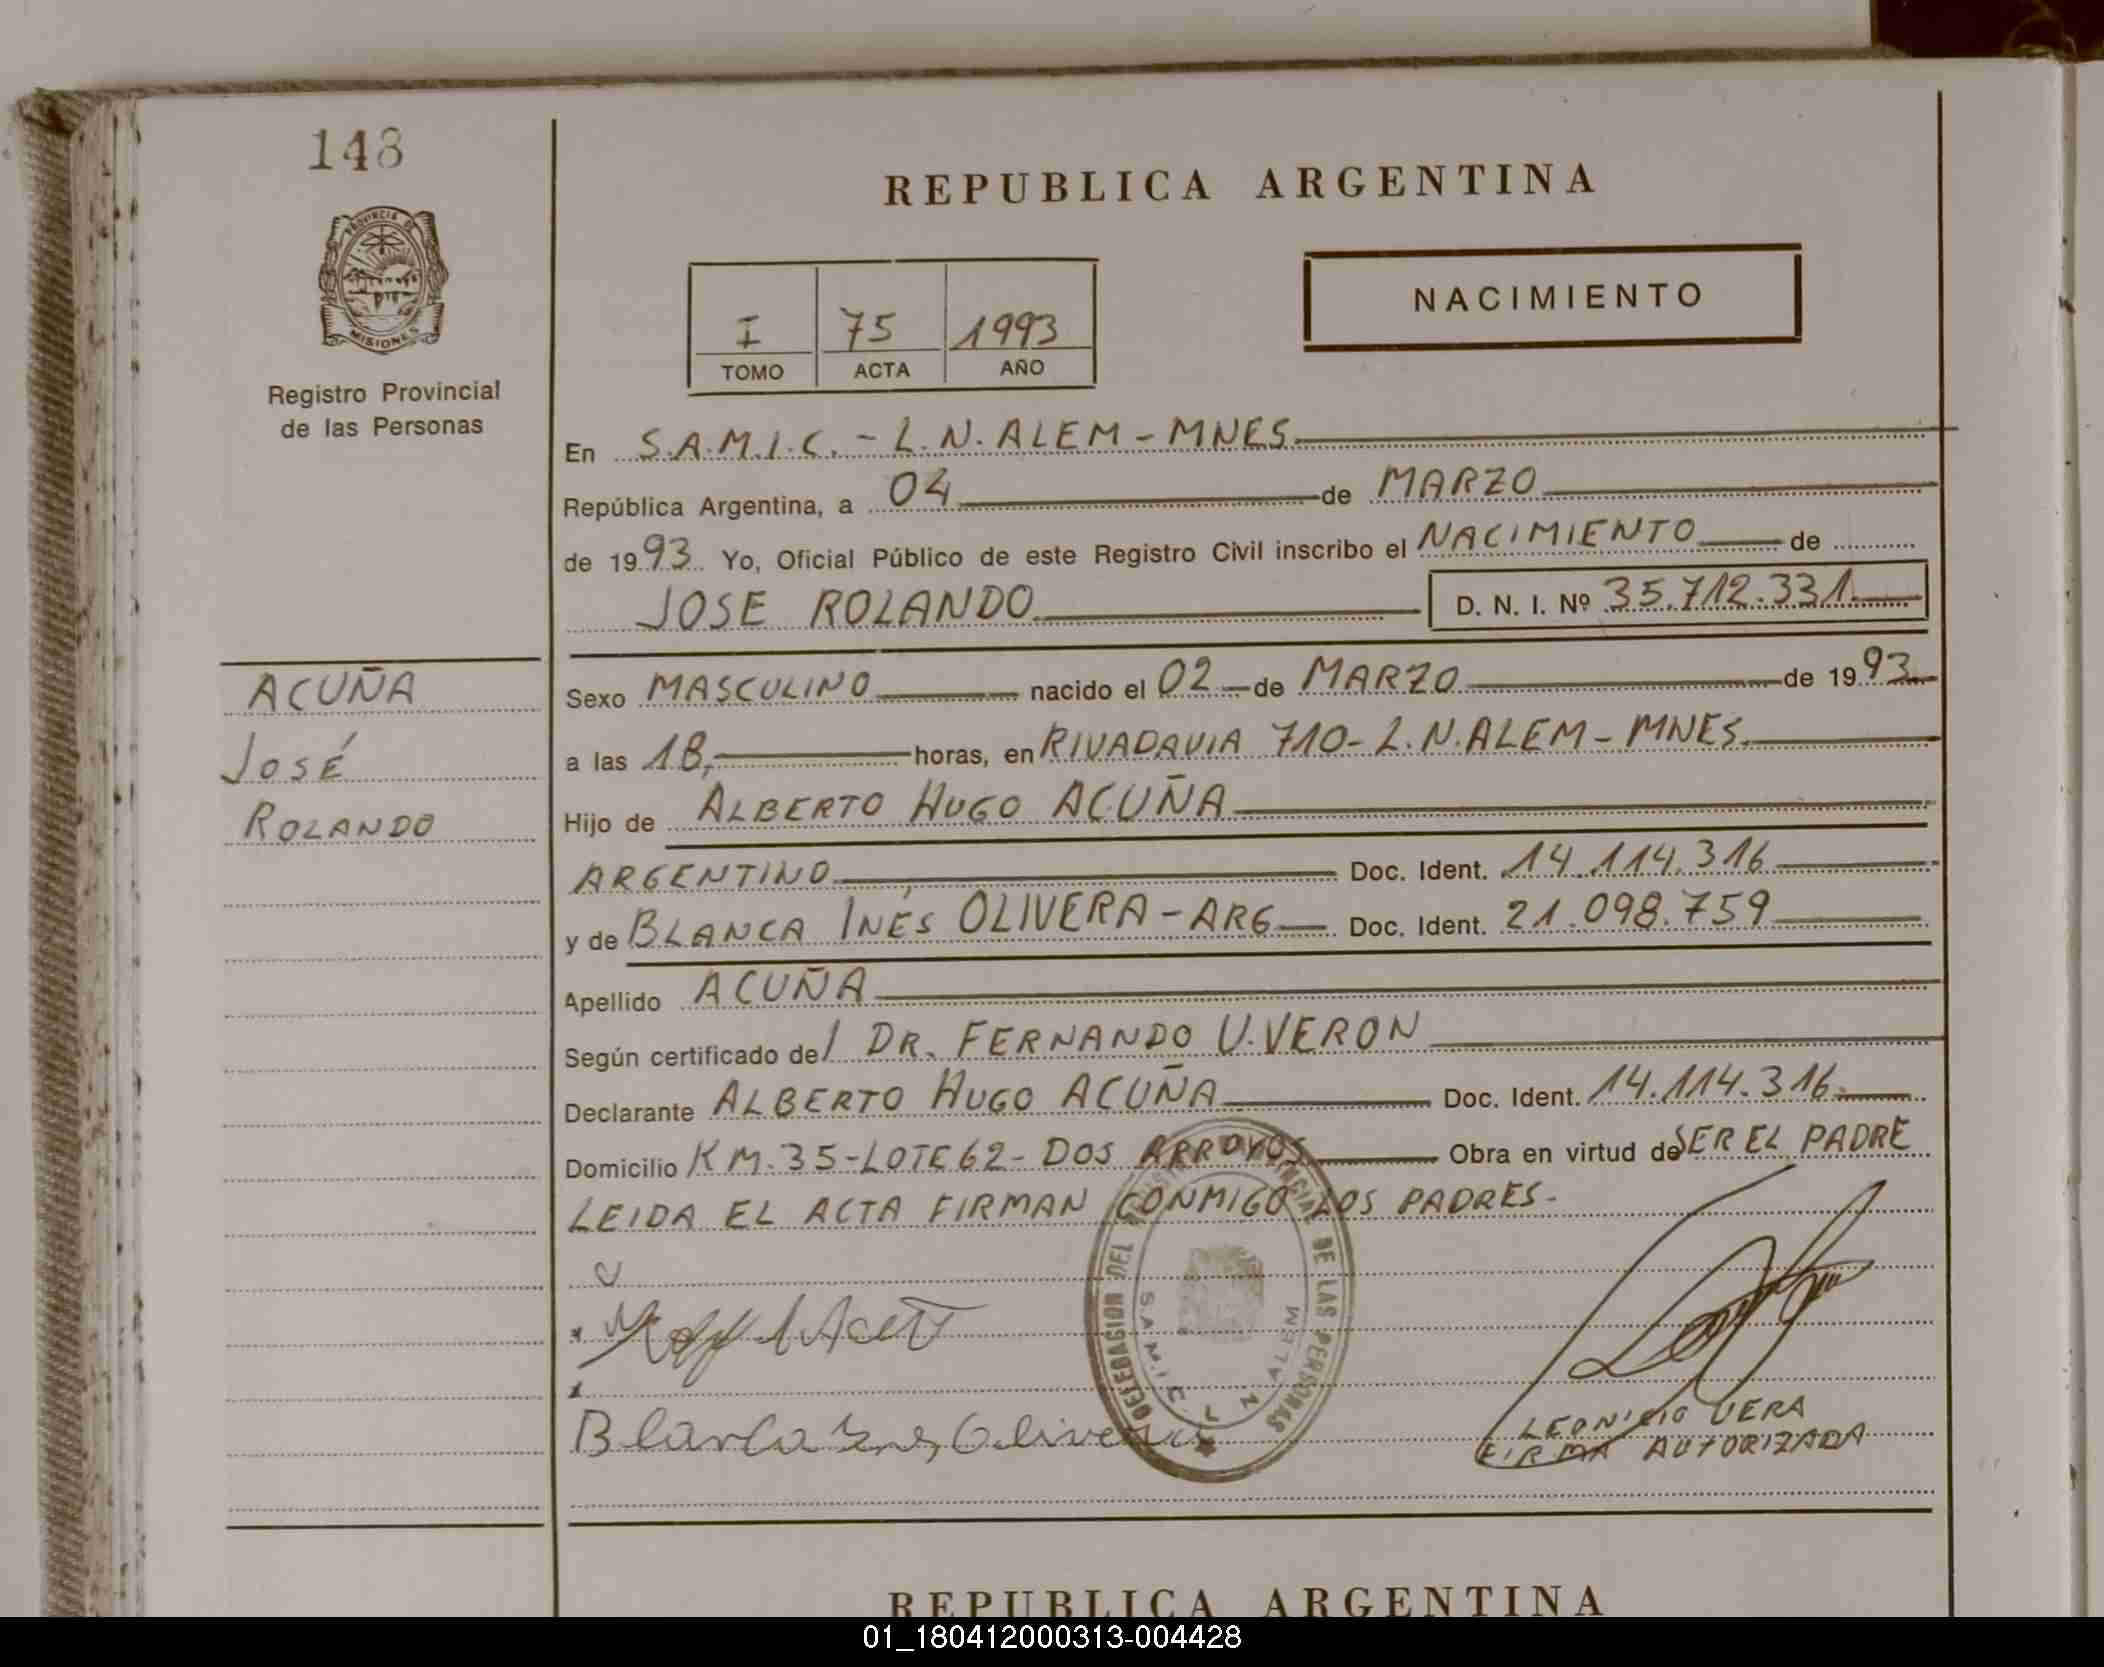 148
PROVINCIA DE
MISIONES
Registro Provincial
de las Personas
REPUBLICA ARGENTINA
I 75 1993
TOMO ACTA AÑO
NACIMIENTO
En S.A.M.I.C. - L.N. ALEM - MNES.
República Argentina, a 04 de MARZO
de 1993. Yo, Oficial Público de este Registro Civil inscribo el NACIMIENTO de
JOSE ROLANDO D. N. I. Nº 35.712.331
ACUÑA
JOSÉ
ROLANDO
Sexo MASCULINO nacido el 02 de MARZO de 1993
a las 18, horas, en RIVADAVIA 710 - L.N. ALEM - MNES.
Hijo de ALBERTO HUGO ACUÑA
ARGENTINO Doc. Ident. 14.114.316
y de BLANCA INÉS OLIVERA - ARG Doc. Ident. 21.098.759
Apellido ACUÑA
Según certificado del DR. FERNANDO U. VERON
Declarante ALBERTO HUGO ACUÑA Doc. Ident. 14.114.316
Domicilio KM. 35 - LOTE 62 - DOS ARROYOS Obra en virtud de SER EL PADRE
LEIDA EL ACTA FIRMAN CONMIGO LOS PADRES -
DELEGACION DEL DE LAS PERSONAS
S.A.M.I.C. L N ALEM
Blanca Ines Olivera
LEONICIO VERA
FIRMA AUTORIZADA
REPUBLICA ARGENTINA
01_180412000313-004428